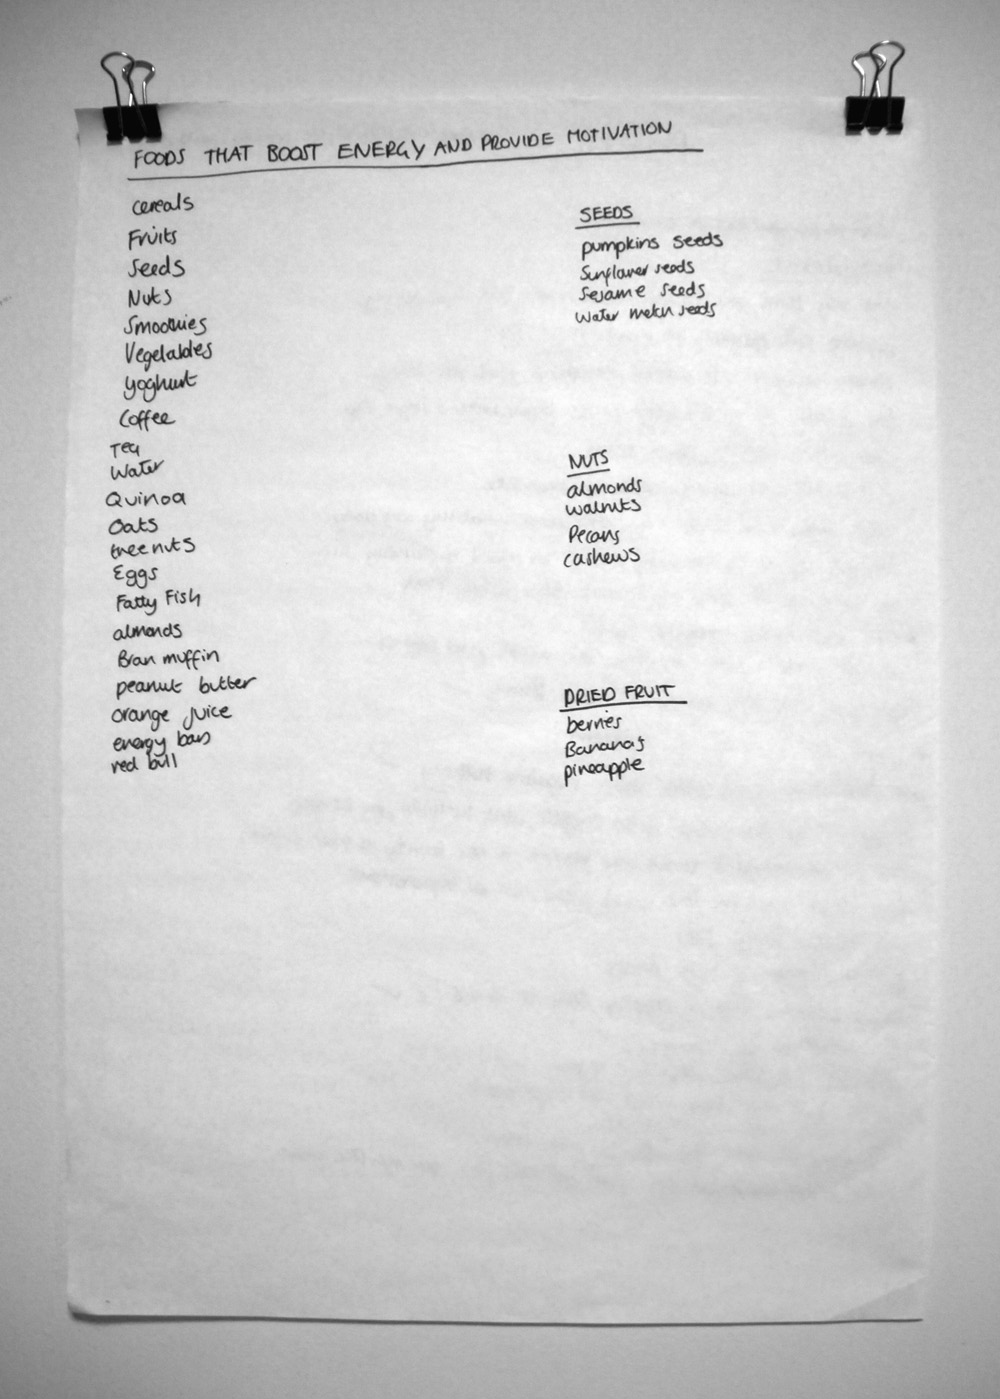 FOODS THAT BOOST ENERGY AND PROVIDE MOTIVATION
cereals
Fruits
Seeds
Nuts
Smoothies
Vegetables
yoghurt
Coffee
Tea
Water
Quinoa
Oats
tree nuts
Eggs
Fatty Fish
almonds
Bran muffin
peanut butter
orange juice
energy bars
red bull
SEEDS
pumpkins seeds
Sunflower seeds
Sesame seeds
Water melon seeds
NUTS
almonds
walnuts
Pecans
cashews
DRIED FRUIT
berries
Bananas
pineapple